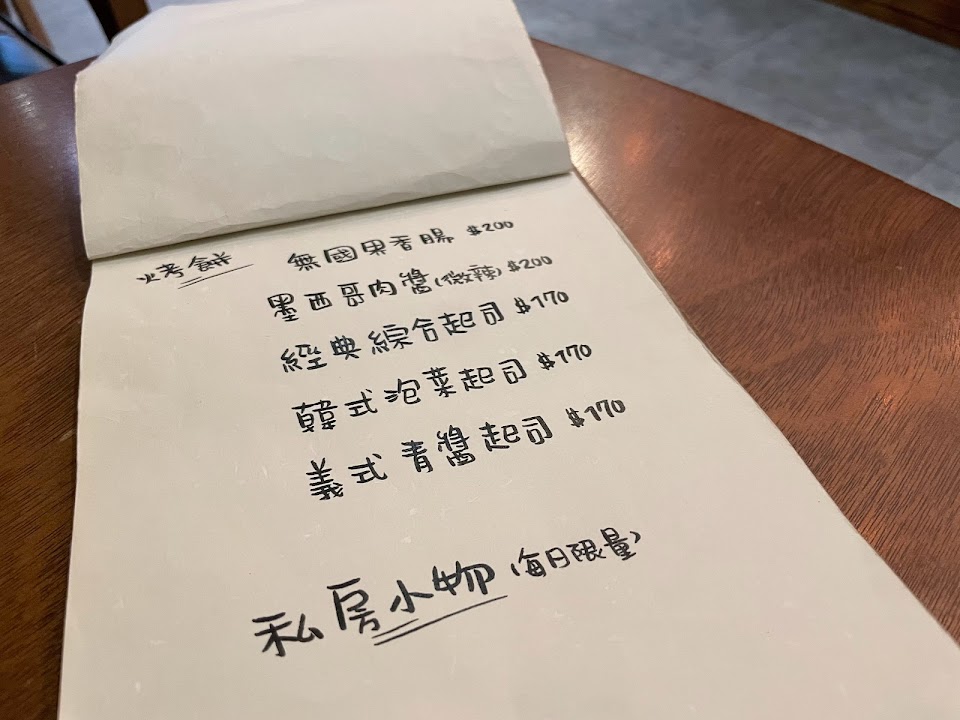 烤餅 無國果香腸 $200
墨西哥肉醬(微辣) $200
經典綜合起司 $170
韓式泡菜起司 $170
義式青醬起司 $170
私房小物(每日限量)